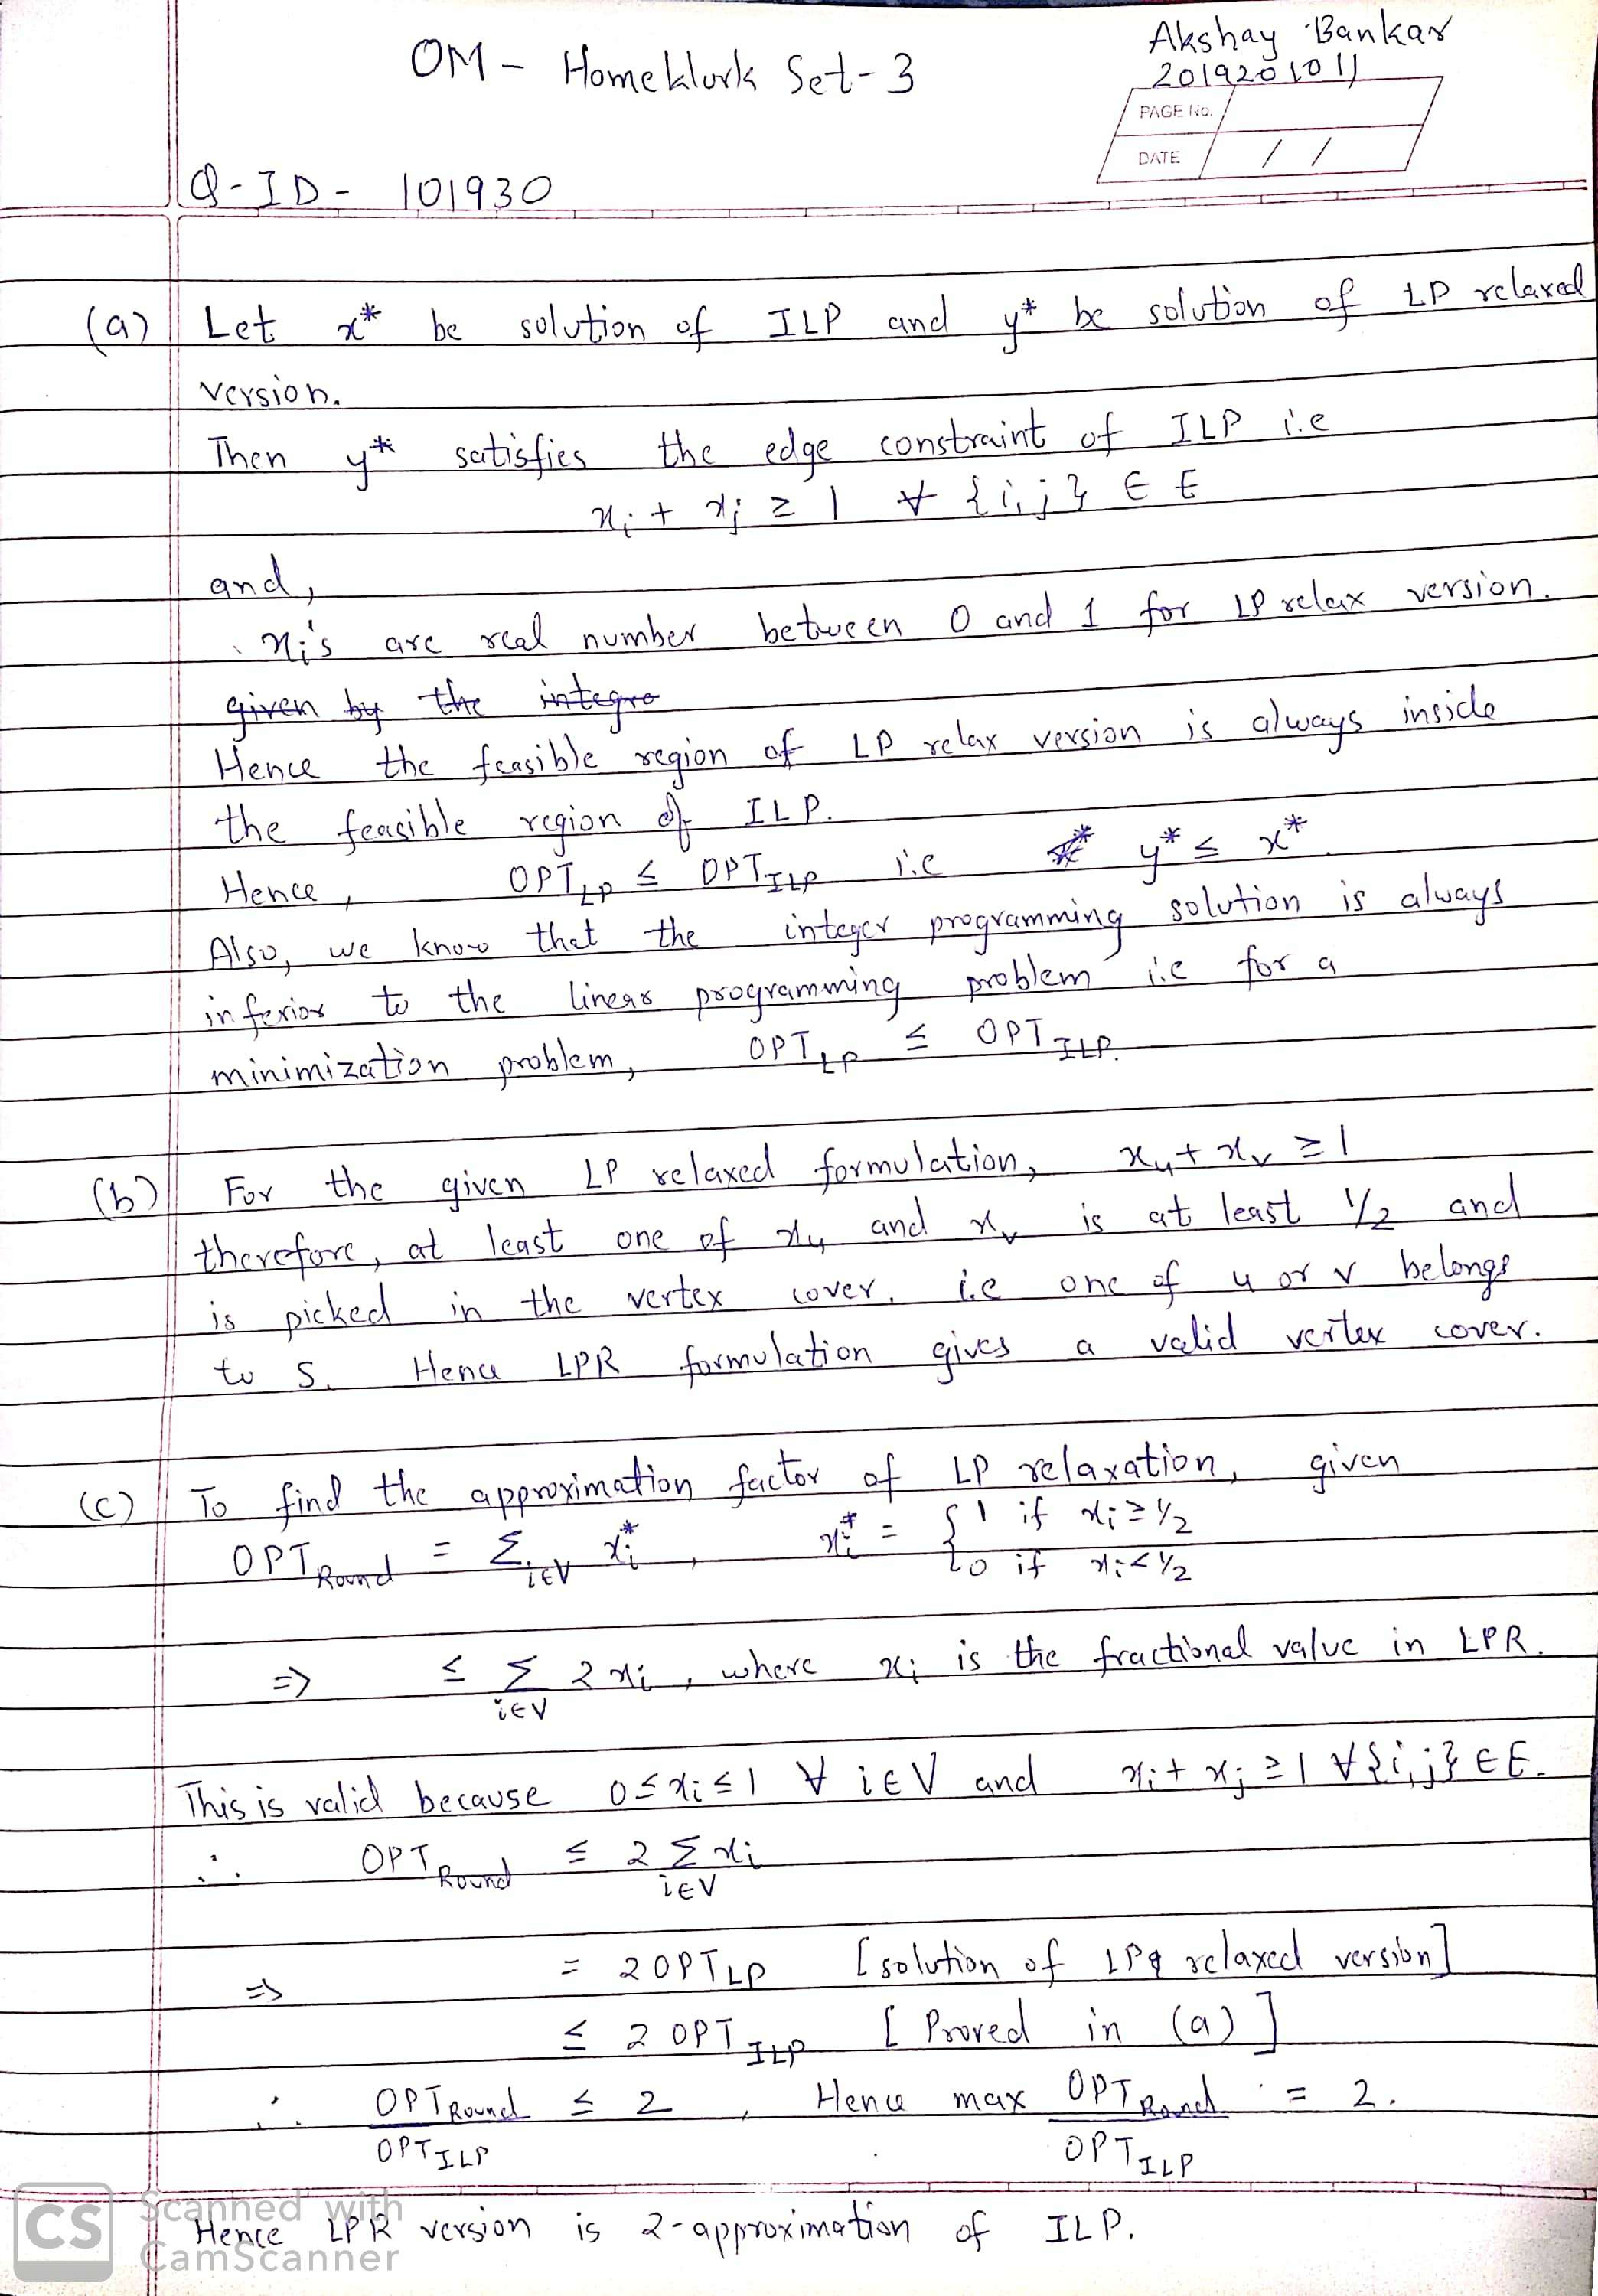 OM - HomeWork Set-3
Akshay Bankar
2019201011
PAGE No.
DATE / /
Q-ID- 101930
(a) Let x* be solution of ILP and y* be solution of LP relaxed
version.
Then y* satisfies the edge constraint of ILP i.e
xi + xj ≥ 1 ∀ {i,j} ∈ E
and,
xi's are real number between 0 and 1 for LP relax version.
given by the integra
Hence the feasible region of LP relax version is always inside
the feasible region of ILP.
Hence, OPT_LP ≤ OPT_ILP i.e y* ≤ x*.
Also, we know that the integer programming solution is always
inferior to the linear programming problem i.e for a
minimization problem, OPT_LP ≤ OPT_ILP.
(b) For the given LP relaxed formulation, xu + xv ≥ 1
therefore, at least one of xu and xv is at least 1/2 and
is picked in the vertex cover. i.e one of u or v belongs
to S. Hence LPR formulation gives a valid vertex cover.
(c) To find the approximation factor of LP relaxation, given
OPT_Round = Σ_{i∈V} xi*, xi* = { 1 if xi ≥ 1/2
0 if xi < 1/2
⇒ ≤ Σ_{i∈V} 2xi, where xi is the fractional value in LPR.
This is valid because 0 ≤ xi ≤ 1 ∀ i∈V and xi + xj ≥ 1 ∀ {i,j} ∈ E.
∴ OPT_Round ≤ 2 Σ_{i∈V} xi
⇒ = 2 OPT_LP [solution of LP relaxed version]
≤ 2 OPT_ILP [Proved in (a)]
∴ OPT_Round / OPT_ILP ≤ 2, Hence max OPT_Round / OPT_ILP = 2.
Hence LPR version is 2-approximation of ILP.
CS Scanned with
CamScanner